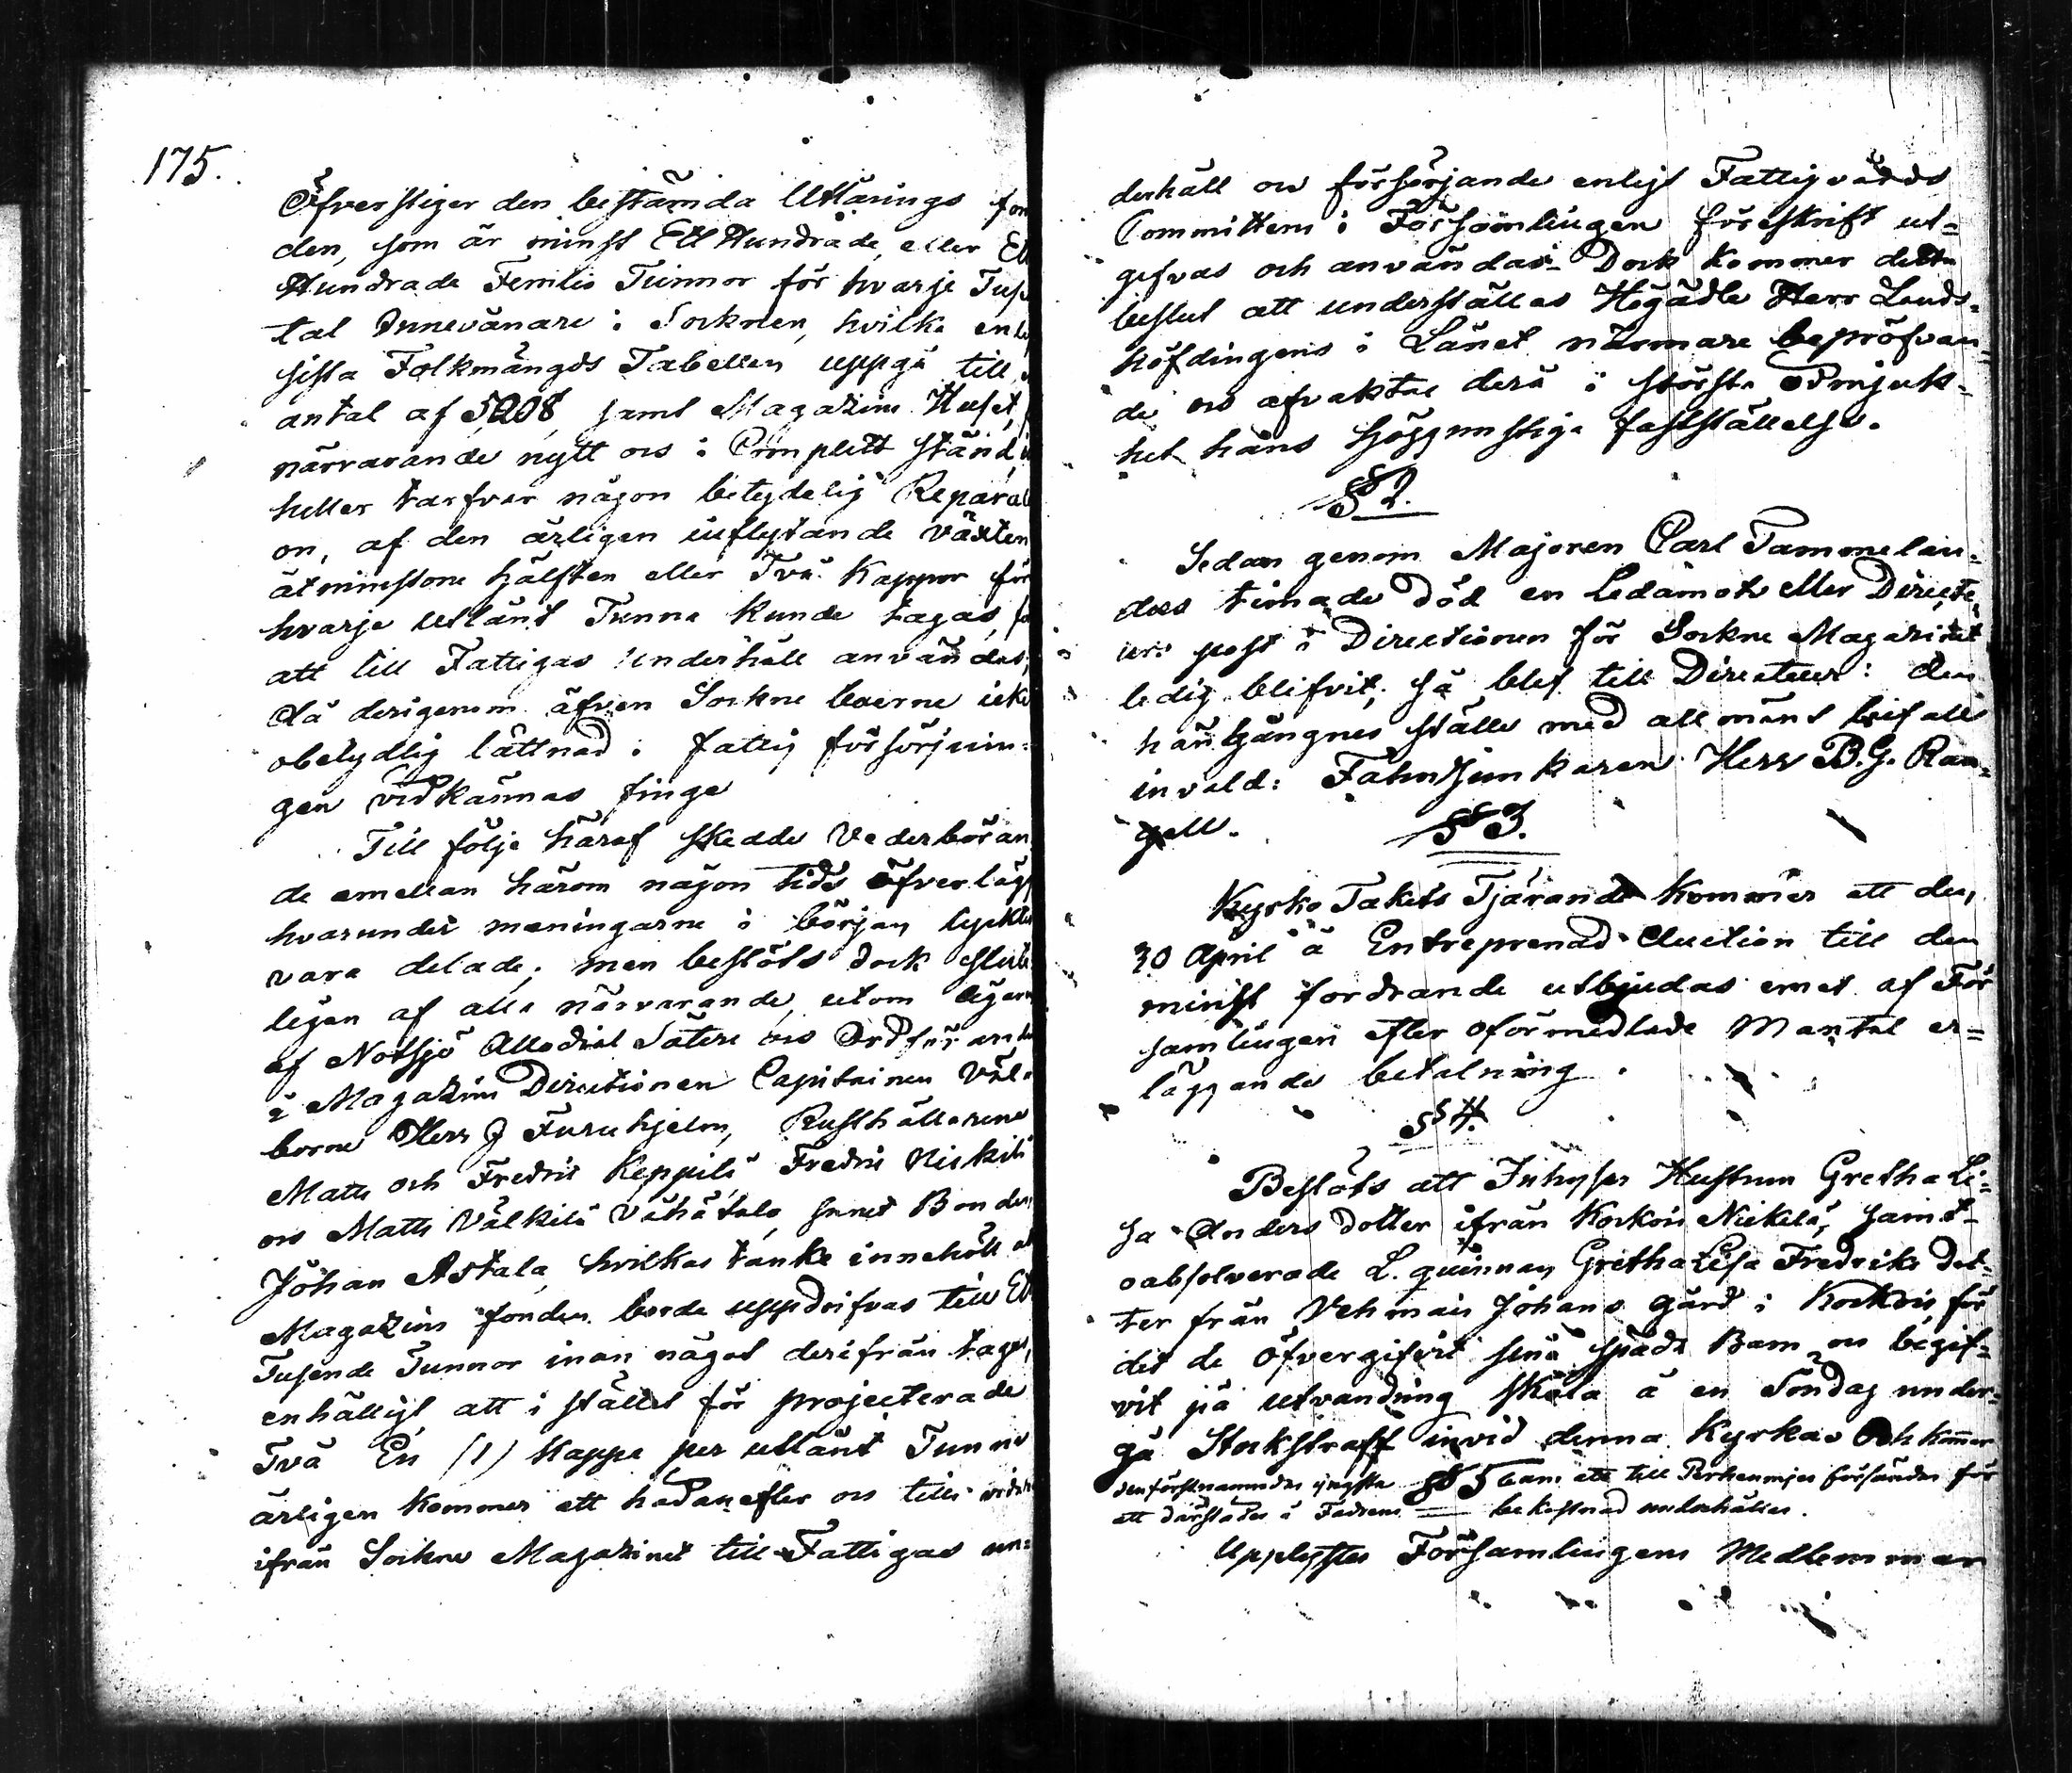 175.
Öfverstiger den bestämda Utlånings fon
den, som är minst Ett Hundrade, eller Ett
Hundrade Femtio Tunnor för hvarje Tusen
tal Innevånare i Socknen, hvilka enl
sista Folkmängds Tabellen uppgå till
antal af 5208, samt Magazins Huset,
närvarande nytt och i Complett stånd,
heller tarfvar någon betydelig Reparati
on, af den årligen inflytande växten
åtminstone hälften eller Två Kappor för
hvarje utlånt Tunna kunde tagas, för
att till Fattigas Underhåll användas,
då derigenom äfven Sockne boerne icke
obetydlig lättnad i fattig försörjnin-
gen vidkännas finge
Till följe häraf skedde Vederböran
de emellan härom någon tids öfverlägg
hvarunder meningarne i början lyckte
vara delade; men beslöts dock slut
ligen af alla närvarande, utom ägaren
af Notsjö Allodial Säteri och Ordförande
i Magazins Directionen Capitainen Väl-
borne Herr J Furuhjelm, Rusthållarene
Matts och Fredric Keppilä Fredric Nickilä
och Matts Välkilä Vähätalo, samt Bonden
Johan Astala, hvilkas tanke innehöll at
Magazins fonden borde uppdrifvas till Ett
Tusende Tunnor inan något derifrån tages,
enhälligt, att i stället för projecterade
Två En (1) Kappa per utlånt Tunna
årligen kommer att hädanefter och tills vidare
ifrån Sockne Magazinet till Fattigas un-
derhåll och försörjande enligt Fattigvårds
Committens i Församlingen föreskrift ut-
gifvas och användas. Dock kommer detta
beslut att underställas Högädle Herr Lands-
höfdingens i Länet närmare bepröfvan-
de och afvaktas derå i största ödmjuk-
het hans höggunstiga fastställelse.
§ 2.
Sedan genom Majoren Carl Tammelan-
ders timade Död en Ledamots eller Directe-
urs post i Directionen för Sockne Magazinet
ledig blifvit; så blef till Directeur i den
hängångnes ställe med allmänt bifall
invald: Fahnjunkaren Herr B.G. Ran-
gell.
§ 3.
Kyrko Takets Tjärande kommer att den
30 April å Entreprenad Auction till den
minst fordrande utbjudas emot af För
samlingen efter oförmedlade Mantal er-
läggande betalning.
§ 4.
Beslöts att Inhyses Hustrun Gretha Li-
sa Anders dotter ifrån Korkois Nickilä, samt
oabsolverade L. quinnan Gretha Lisa Fredriks dot-
ter från Vehmais Johans gård i Korkois för
det de öfvergifvit sina späda Barn och begif-
vit på utvandring skola å en Söndag under-
gå Stockstraff invid denna Kyrka. Och kommer
denförstnamndas yngsta barn att till Perheniemi försändas för
§ 5
att därstädes å Fadrens bekostnad underhållas.
Upplystes Församlingens Medlemmar